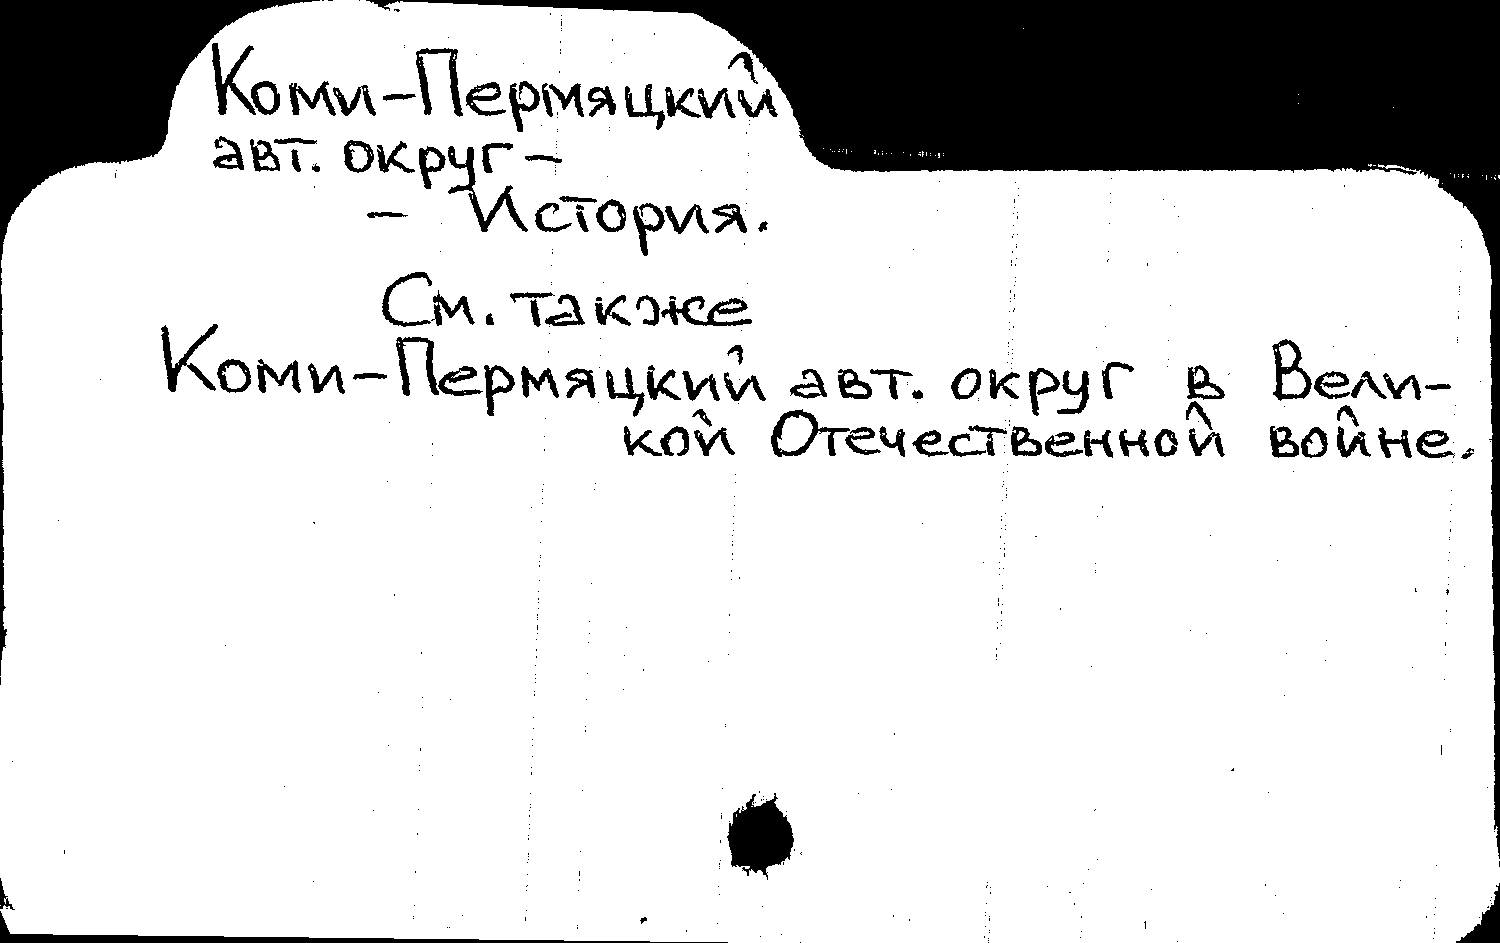 Коми-Пермяцкий
авт. округ -
- История.
См. также
Коми-Пермяцкий авт. округ в Вели-
кой Отечественной войне.